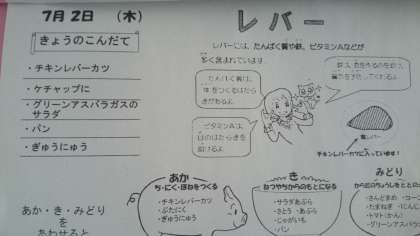 7月2日 (木)
きょうのこんだて
・チキンレバーカツ
・ケチャップに
・グリーンアスパラガスの
サラダ
・パン
・ぎゅうにゅう
レバー
レバーには、たんぱく質や鉄、ビタミンAなどが
多く含まれています。
たんぱく質は、
体をつくるはたら
きがあるよ
ビタミンAは、
目のはたらきを
助けるよ
鶏レバー
チキンレバーカツに入っています!
あか
ち・にく・ほねをつくる
・チキンレバーカツ
・ぶたにく
・ぎゅうにゅう
き
ねつやちからのもとになる
・サラダあぶら
・さとう ・あぶら
・じゃがいも
・パン
みどり
からだのちょうしをととの
・さんどまめ ・コーン
・たまねぎ ・にんじ
・トマト(かん)
・グリーンアスパラガス
あか・き・みどり
を
あわせると